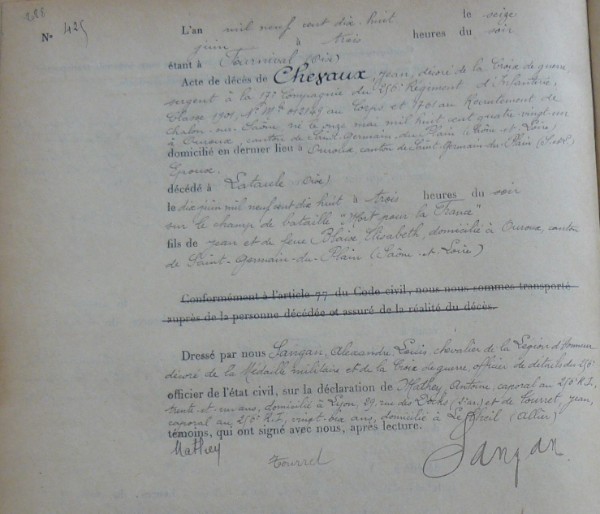 288
N° 425
L'an mil neuf cent dix huit le seize
juin à trois heures du soir
étant à Tarnival (Oise)
Acte de décès de Chevaux, Jean, décoré de la Croix de guerre
sergent à la 17e Compagnie du 256e Régiment d'Infanterie,
Classe 1901, N° Mle 012149 au Corps et 1701 au Recrutement de
Chalon-sur-Saône né le onze mai mil huit cent quatre vingt un
à Ouroux, canton de Saint-Germain du Plain (Saône et Loire)
domicilié en dernier lieu à Ouroux, canton de Saint-Germain du Plain (S.et L.)
Epoux
décédé à Lataule (Oise)
le dix juin mil neuf cent dix huit à trois heures du soir
sur le champ de bataille "Mort pour la France"
fils de Jean et de feue Blaise, Elisabeth, domicilié à Ouroux, canton
de Saint-Germain-du-Plain (Saône et Loire)
Conformément à l'article 77 du Code civil, nous nous sommes transporté
auprès de la personne décédée et assuré de la réalité du décès.
Dressé par nous Sangan, Alexandre, Louis, chevalier de la Légion d'Honneur
décoré de la Médaille militaire et de la Croix de guerre officier de détails du 256e
officier de l'état civil, sur la déclaration de Mathey, Antoine, caporal au 256e R.I.,
trente et un ans, domicilié à Lyon, 29, rue des Docks et de Tourret, Jean,
caporal au 256e R.I., vingt six ans, domicilié à Le Theil (Allier)
témoins, qui ont signé avec nous, après lecture.
Mathey
Tourret
Sangan